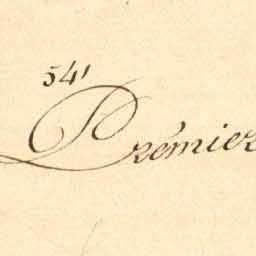 541
Premier